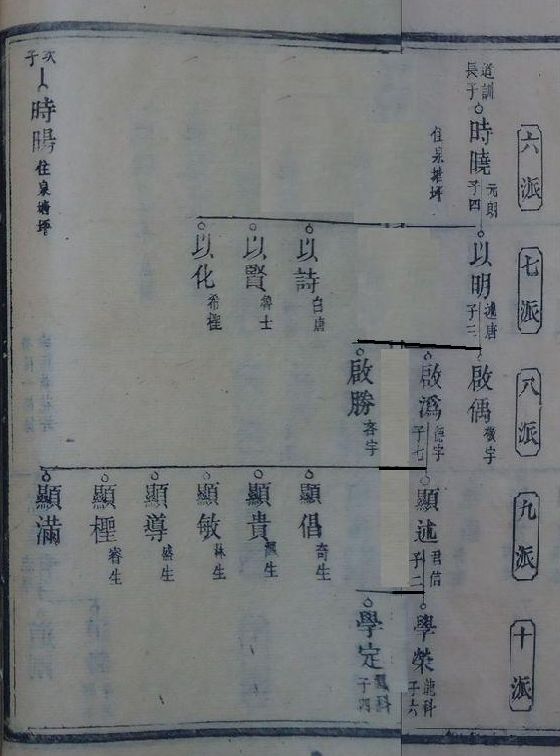 六派
七派
八派
九派
十派
道訓
長子
時曉
元朗
子四
住泉塘坪
次子
時暘
住泉塘坪
以明
述唐
子三
以詩
白唐
以賢
魯士
以化
希
啟偶
啟溈
子七
啟勝
吝字
顯述
君信
子二
顯倡
奇生
顯貴
顯敏
林生
顯導
盛生
顯
睿生
顯滿
學榮
龍科
子六
學定
子四